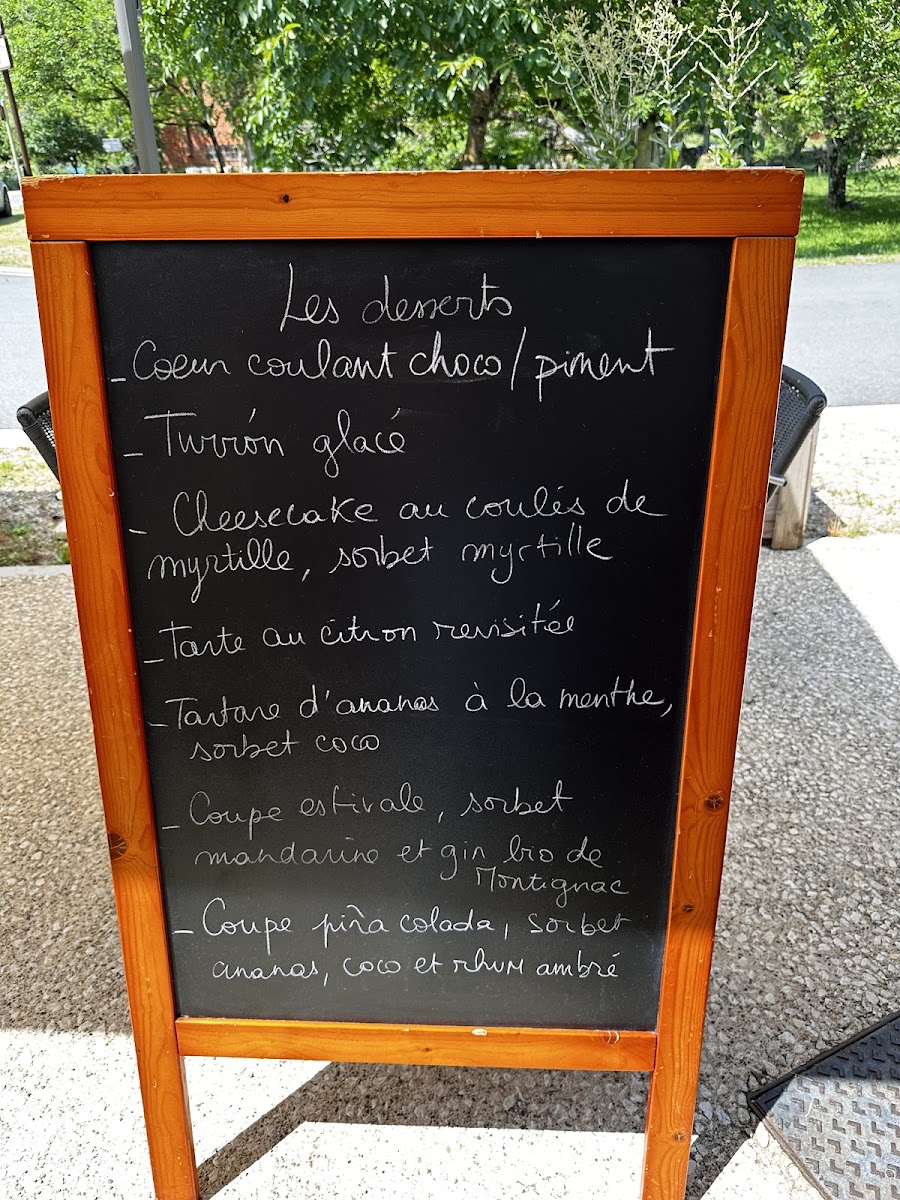 Les desserts
- Coeur coulant choco/piment
- Turrón glacé
- Cheesecake au coulés de
myrtille, sorbet myrtille
- Tarte au citron revisitée
- Tartare d'ananas à la menthe,
sorbet coco
- Coupe estivale, sorbet
mandarine et gin bio de
Montignac
- Coupe piña colada, sorbet
ananas, coco et rhum ambré